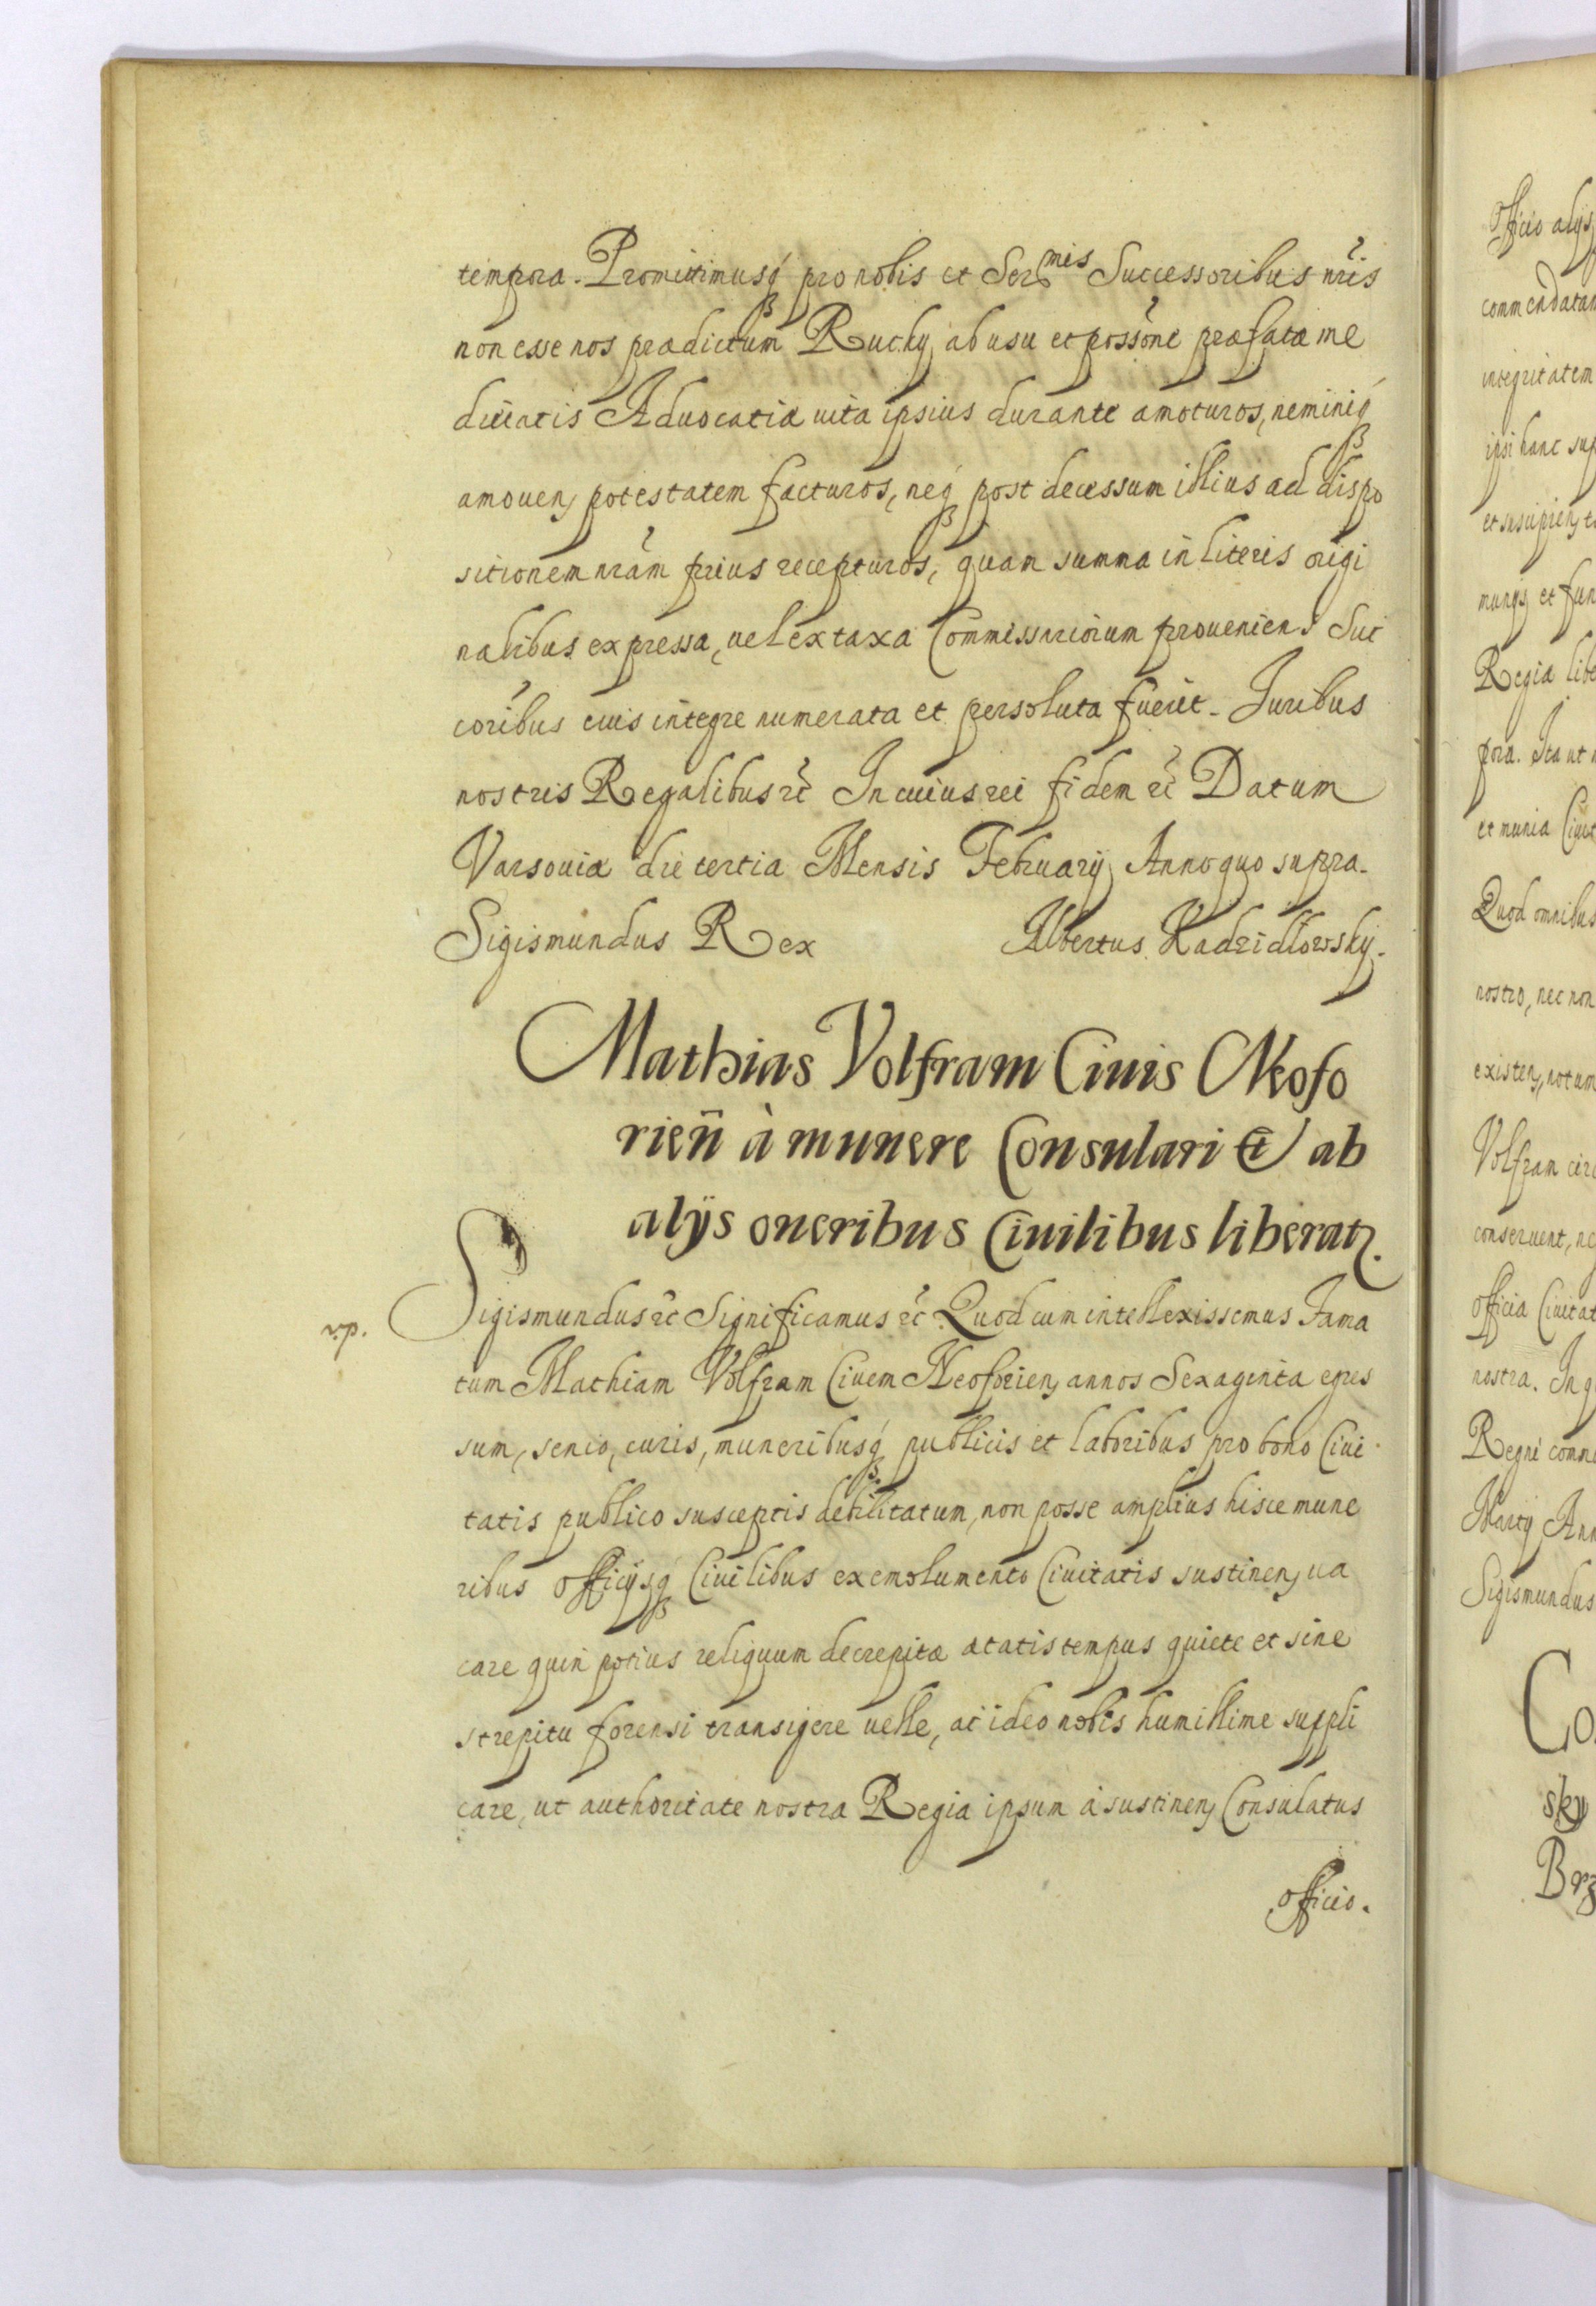 tempora. Promittimusq́ pro nobis et Ser^mis Successoribus nr̃is
non esse nos prædictum Rucky ab usu et possõne præfatæ me
dietatis Aduocatiæ uita ipsius durante amoturos, neminiq́
amouen, potestatem facturos, neq́ post decessum illius ad dispo
sitionem nrãm prius recepturos, quam summa in literis origi
nalibus expressa, uel ex taxa Commissariorum proueniens Suc
coribus eius integre numerata et persoluta fuerit. Juribus
nostris Regalibus etc̃ In cuius rei fidem etc̃ Datum
Varsouiæ die tertia Mensis February Anno quo supra.
Sigismundus Rex Albertus Kadzidłowsky.
Mathias Volfram Ciuis Neofo
rien̄ à munere Consulari et ab
alÿs oneribus Ciuilibus liberatꝫ.
r.p.
Sigismundus etc̃ Significamus etc̃ Quod cum intellexissemus Fama
tum Mathiam Volfram Ciuem Neoforien, annos Sexaginta egres
sum, senio, curis, muneribusq́ publicis et laboribus pro bono Ciui
tatis publico susceptis debilitatum, non posse amplius hisce mune
ribus officÿsq́ Ciuilibus ex emolumento Ciuitatis sustinen, ua
care quin potius reliquum decrepitæ ætatis tempus quiete et sine
strepitu forensi transigere uelle, ac ideo nobis humillime suppli
care, ut authoritate nostra Regia ipsum à sustinen, Consulatus
officio.
Officio alys
commendatam
integritatem
ipsi hanc sup
et suscipien, t
munys et fun
Regia libe
pora. Ita ut n
et munia Ciuit
Quod omnibus
nostro, nec non
existen, notum
Volfram circ
conseruent, ne
officia Ciuitat
nostra. In q
Regni commu
Marty Ann
Sigismundus
Co
sky
Brz